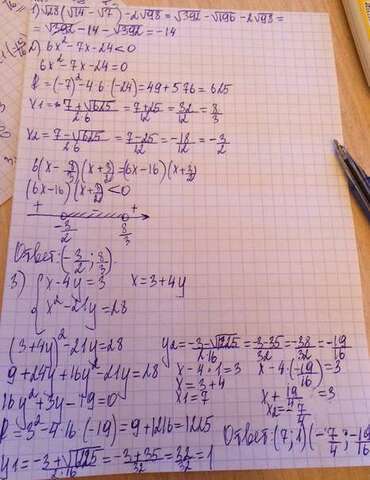 1) √28(√14 - √7) - 2√98 = √392 - √196 - 2√98 =
= √392 - 14 - √392 = -14
2) 6x² - 7x - 24 < 0
6x² - 7x - 24 = 0
D = (-7)² - 4·6·(-24) = 49 + 576 = 625
x1 = (7+√625)/(2·6) = (7+25)/12 = 32/12 = 8/3
x2 = (7-√625)/(2·6) = (7-25)/12 = -18/12 = -3/2
6(x - 8/3)(x + 3/2) = (6x-16)(x + 3/2)
(6x-16)(x + 3/2) < 0
+ - +
-3/2 8/3
Ответ: (-3/2; 8/3)
3) { x - 4y = 3 x = 3 + 4y
x² - 21y = 28
(3+4y)² - 21y = 28
9 + 24y + 16y² - 21y = 28
16y² + 3y - 19 = 0
D = 3² - 4·16·(-19) = 9 + 1216 = 1225
y1 = (-3+√1225)/(2·16) = (-3+35)/32 = 32/32 = 1
y2 = (-3-√1225)/(2·16) = (-3-35)/32 = -38/32 = -19/16
x - 4·1 = 3 x - 4·(-19/16) = 3
x = 3 + 4
x1 = 7
x + 19/4 = 3
x2 = -7/4
Ответ: (7; 1) (-7/4; -19/16